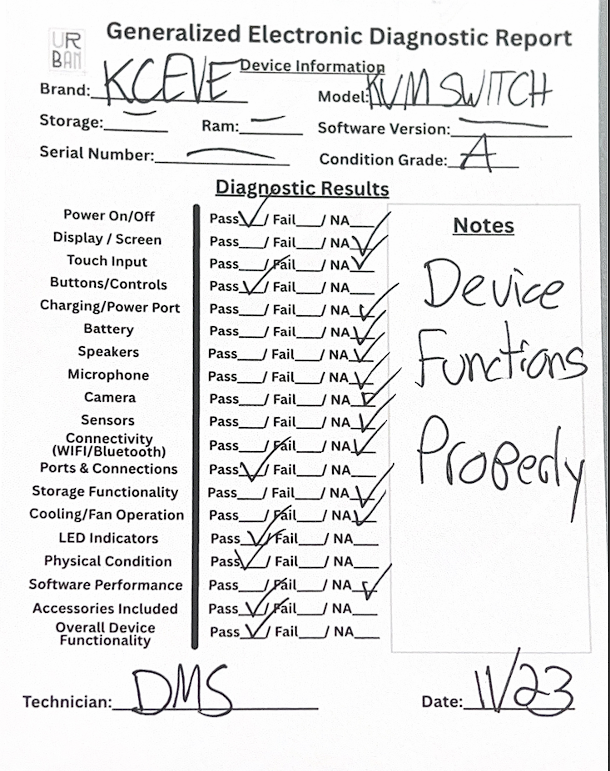 UR
BAN
Generalized Electronic Diagnostic Report
Device Information
Brand: KCEVE Model: KVM SWITCH
Storage: — Ram: — Software Version: —
Serial Number: — Condition Grade: A
Diagnostic Results
Notes
Power On/Off Pass✓/ Fail___/ NA___
Display / Screen Pass___/ Fail___/ NA✓
Touch Input Pass___/ Fail___/ NA✓
Buttons/Controls Pass✓/ Fail___/ NA___
Charging/Power Port Pass___/ Fail___/ NA✓
Battery Pass___/ Fail___/ NA✓
Speakers Pass___/ Fail___/ NA✓
Microphone Pass___/ Fail___/ NA✓
Camera Pass___/ Fail___/ NA✓
Sensors Pass___/ Fail___/ NA✓
Connectivity
(WIFI/Bluetooth) Pass___/ Fail___/ NA✓
Ports & Connections Pass✓/ Fail___/ NA___
Storage Functionality Pass___/ Fail___/ NA✓
Cooling/Fan Operation Pass___/ Fail___/ NA✓
LED Indicators Pass✓/ Fail___/ NA___
Physical Condition Pass✓/ Fail___/ NA___
Software Performance Pass___/ Fail___/ NA✓
Accessories Included Pass✓/ Fail___/ NA___
Overall Device
Functionality Pass✓/ Fail___/ NA___
Device
Functions
Properly
Technician: DMS Date: 11/23